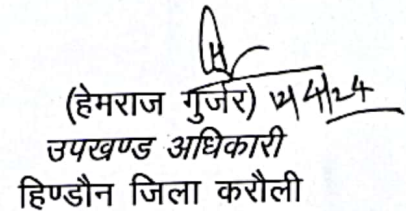 (हेमराज गुर्जर) 12/4/24
उपखण्ड अधिकारी
हिण्डौन जिला करौली